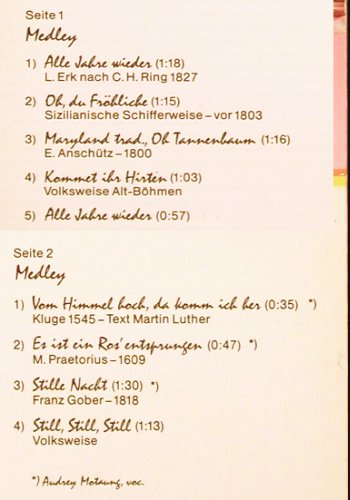 Seite 1
Medley
1) Alle Jahre wieder (1:18)
L. Erk nach C. H. Ring 1827
2) Oh, du Fröhliche (1:15)
Sizilianische Schifferweise – vor 1803
3) Maryland trad., Oh Tannenbaum (1:16)
E. Anschütz – 1800
4) Kommet ihr Hirten (1:03)
Volksweise Alt-Böhmen
5) Alle Jahre wieder (0:57)
Seite 2
Medley
1) Vom Himmel hoch, da komm ich her (0:35) *)
Kluge 1545 – Text Martin Luther
2) Es ist ein Ros' entsprungen (0:47) *)
M. Praetorius – 1609
3) Stille Nacht (1:30) *)
Franz Gober – 1818
4) Still, Still, Still (1:13)
Volksweise
*) Audrey Motaung, voc.